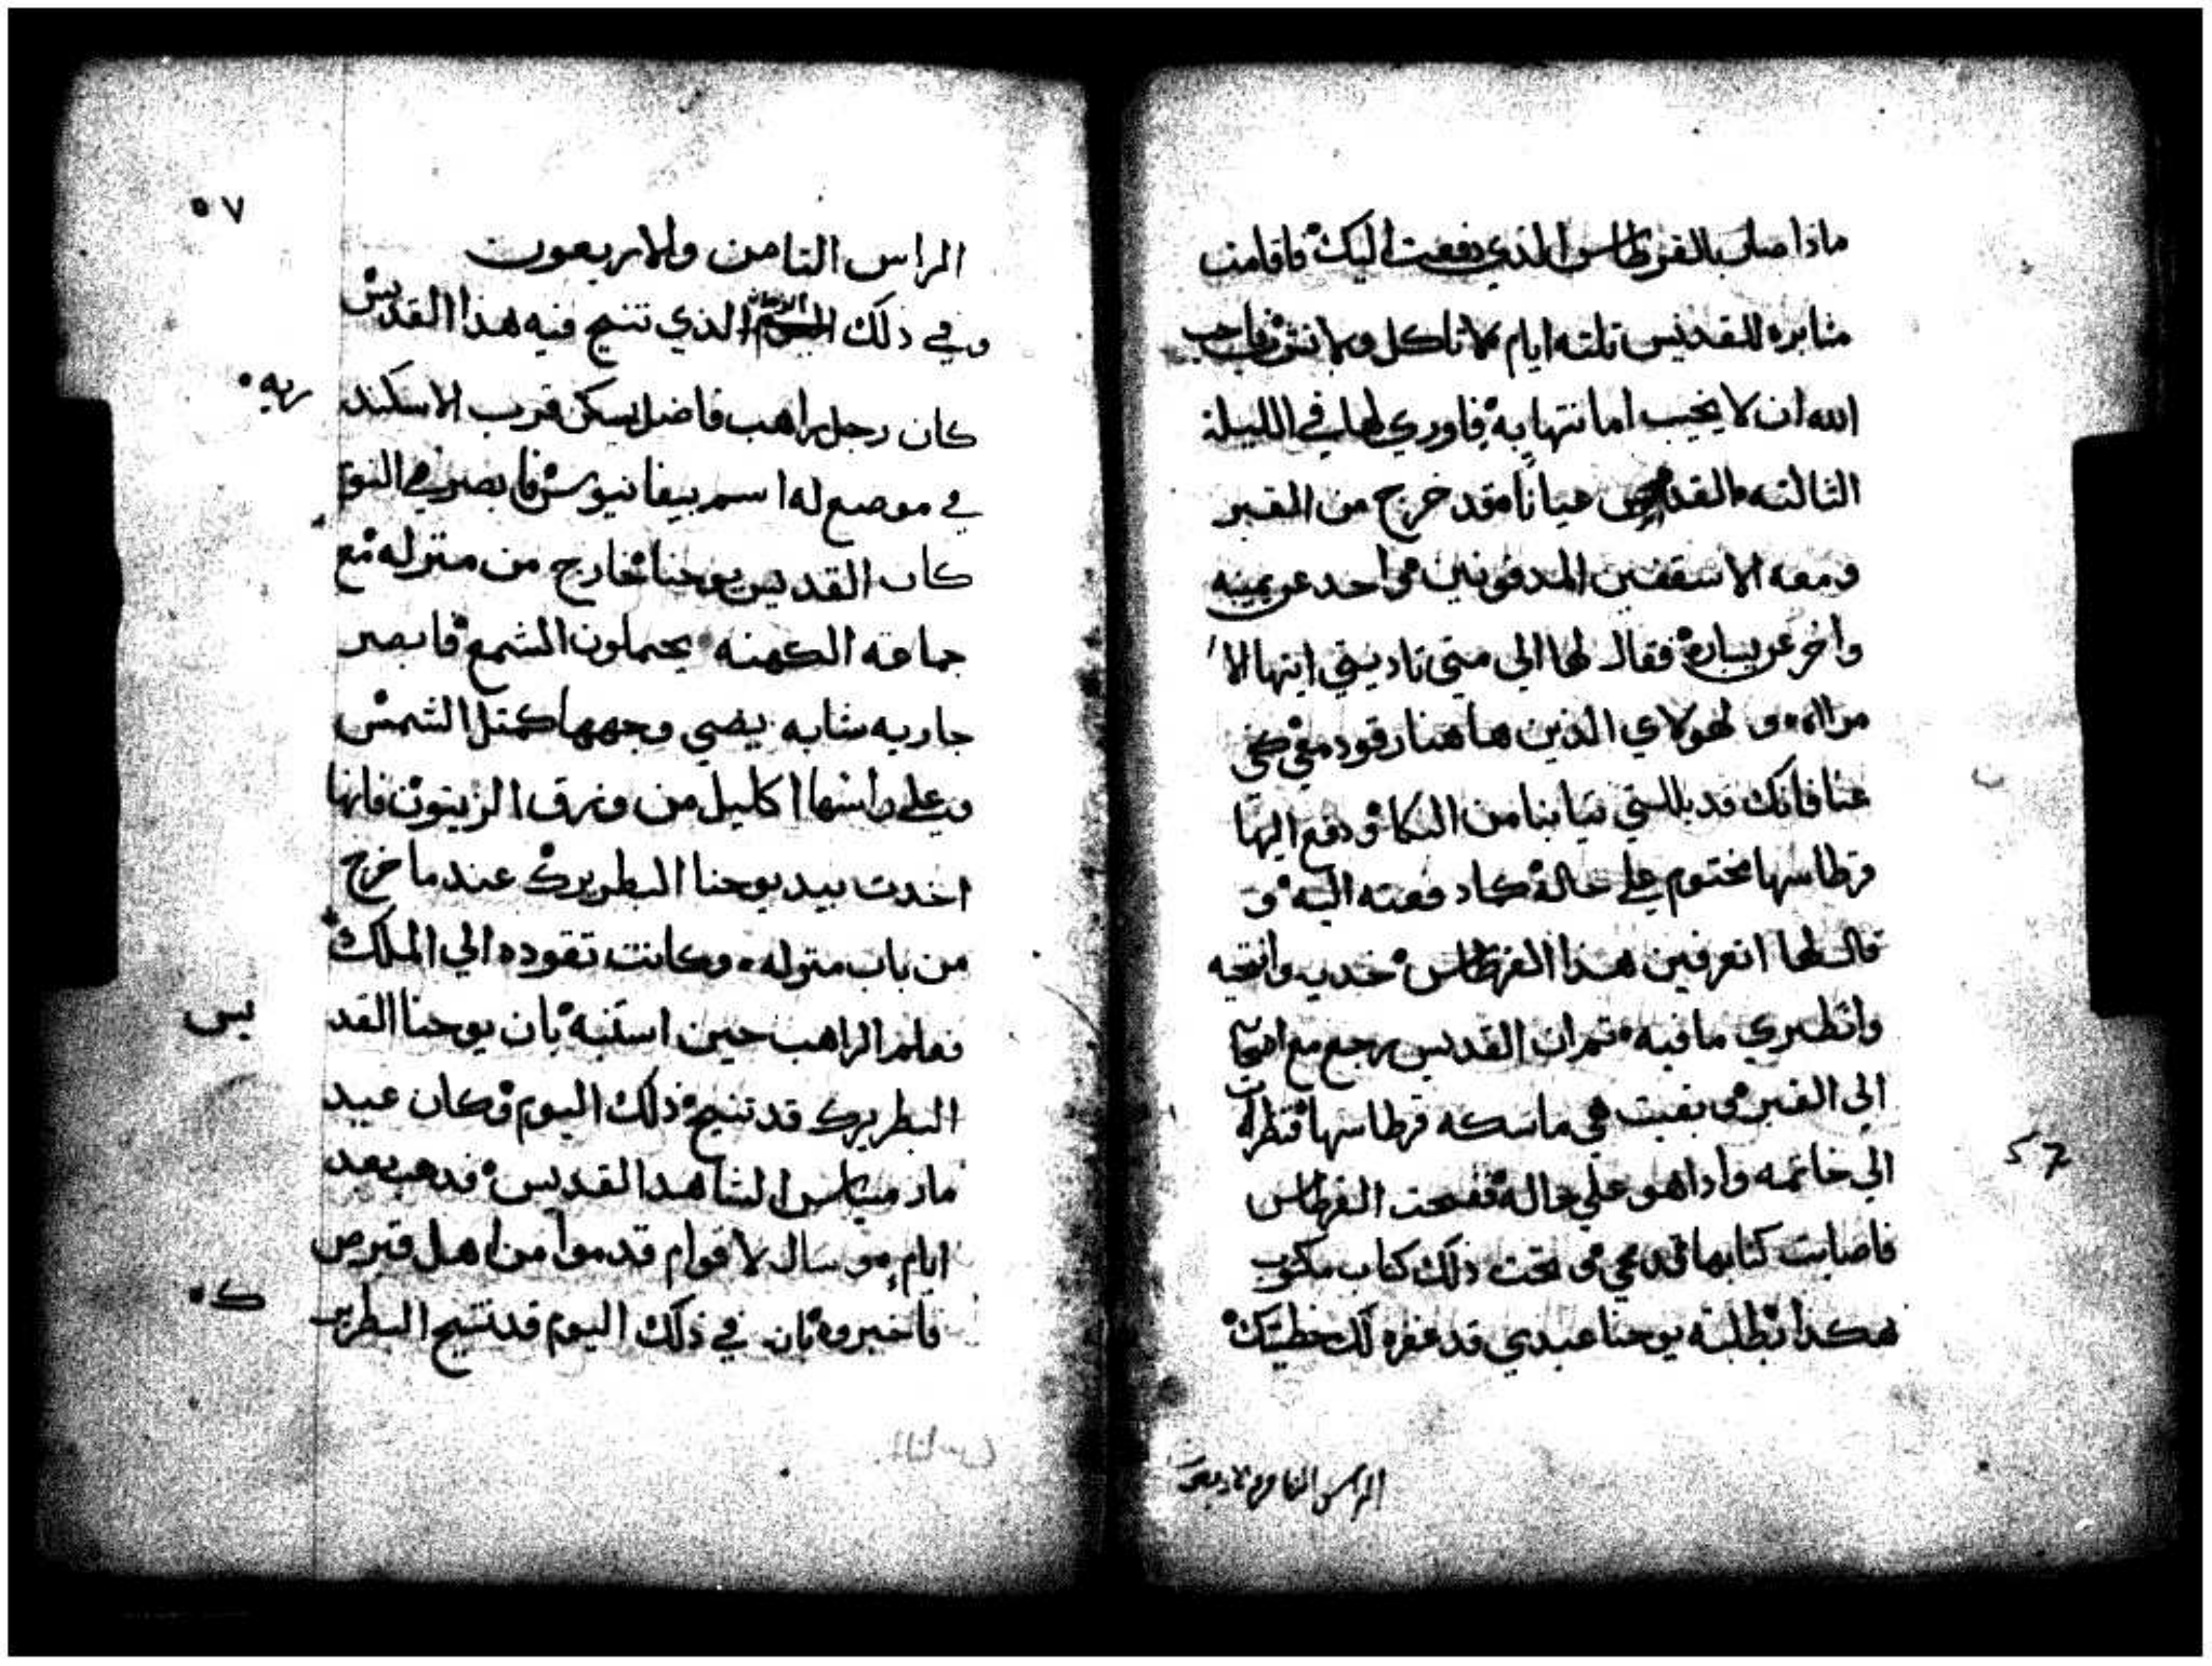 ماذا صار بالقرطاس الذي دفعت اليك فاقامت
مثابره للقديس تلته ايام لا تاكل ولا تشرب فاحب
الله ان لا يخيب امانتها به فاوري لها في الليلة
التالته القديس عيانا وقد خرج من القبر
ومعه الاسقفين المدفونين واحد عن يمينه
واخر عن يساره فقال لها الي متي تاديني ايتها الا
مراه و لهولاي الذين هاهنا رقود معي تخي
عنا فانك قد بللتي تيابنا من البكا و دفع اليها
قرطاسها مختوم علي حالة كما دفعته اليه و
قال لها اتعرفين هذا القرطاس خديه وافتحيه
وانظري ما فيه تم ان القديس رجع مع اصحابه
الي القبر و بقيت هي ماسكه قرطاسها فنظرت
الي خاتمه واداهو علي حاله ففتحت القرطاس
فاصابت كتابها قد محي و تحت ذلك كتاب مكتوب
هكدا بطلبة يوحنا عبدي قد غفره لك خطيتك
الراس التامن والاربعون
57
٥٧
الراس التامن والاربعون
وفي دلك الزمان الذي تنيح فيه هذا القديس
كان رجل راهب فاضل يسكن قرب الاسكند
ريه
في موضع له اسم بيفانيوس فابصر في النوم
كان القديس يوحنا خارج من منزله مع
جماعه الكهنه يحملون الشمع فابصر
جاريه شابه يضي وجهها كمتل الشمس
وعلي راسها اكليل من ورق الزيتون فانها
اخدت بيد يوحنا البطريرك عندما خرج
من باب منزله وكانت تقوده الي الملك
فعلم الراهب حين استنبه بان يوحنا القد
يس
البطريرك قد تنيح ذلك اليوم وكان عيد
مار ميناس الشاهد القديس فدهب بعد
ايام و سال لاقوام قدموا من اهل قبرص
فاخبروه بان في ذلك اليوم قد تنيح البطري
ك